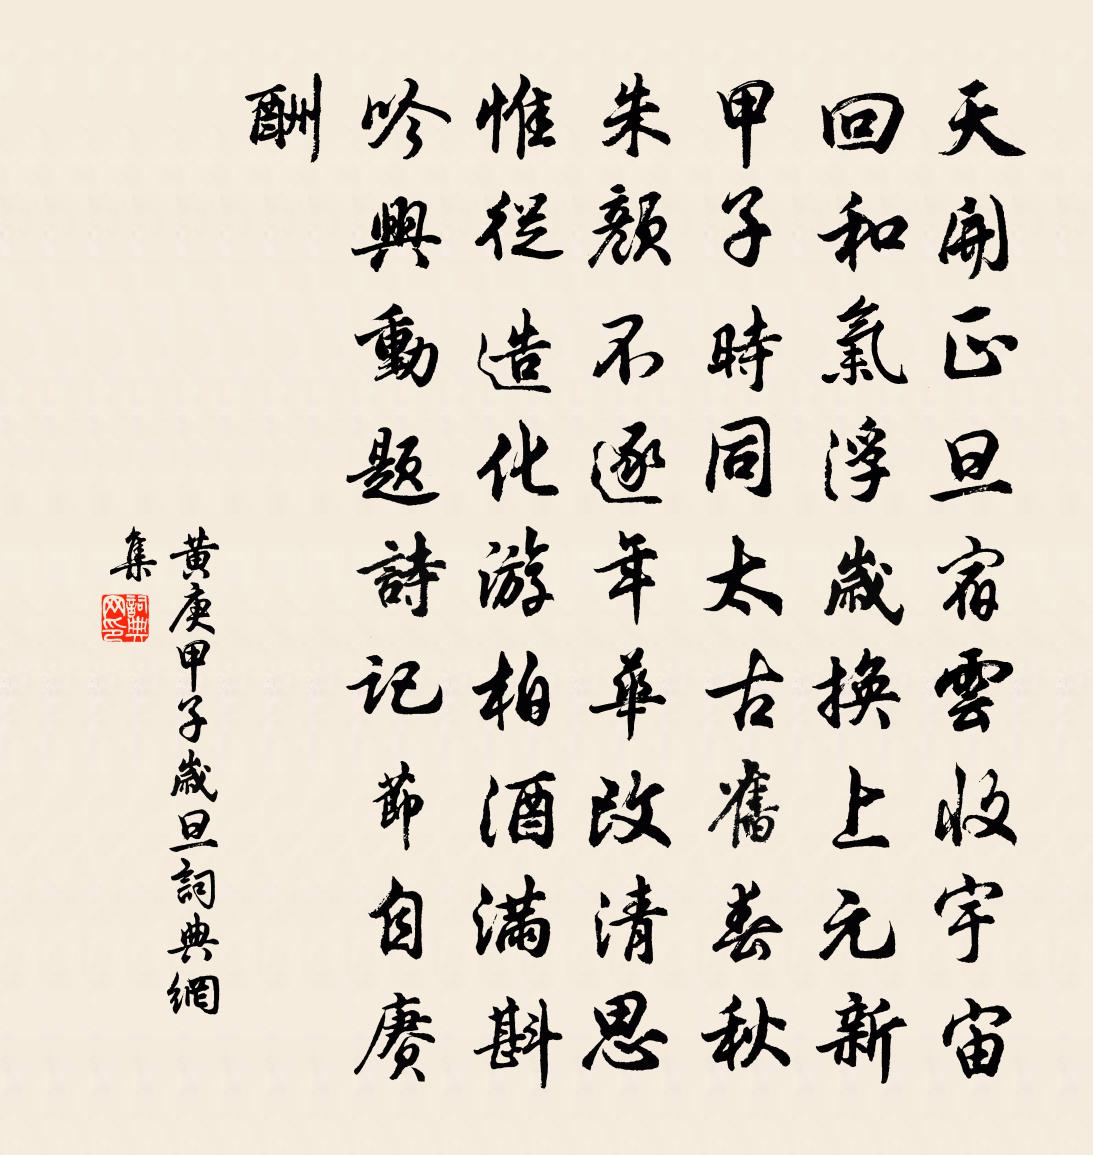 天開正旦宿雲收宇宙
回和氣浮歲換上元新
甲子時同太古舊春秋
朱顏不逐年華改清思
惟從造化游柏酒滿斟
吟興動題詩記節自賡
酬
黃庚甲子歲旦詞典網
集
詞典
网印